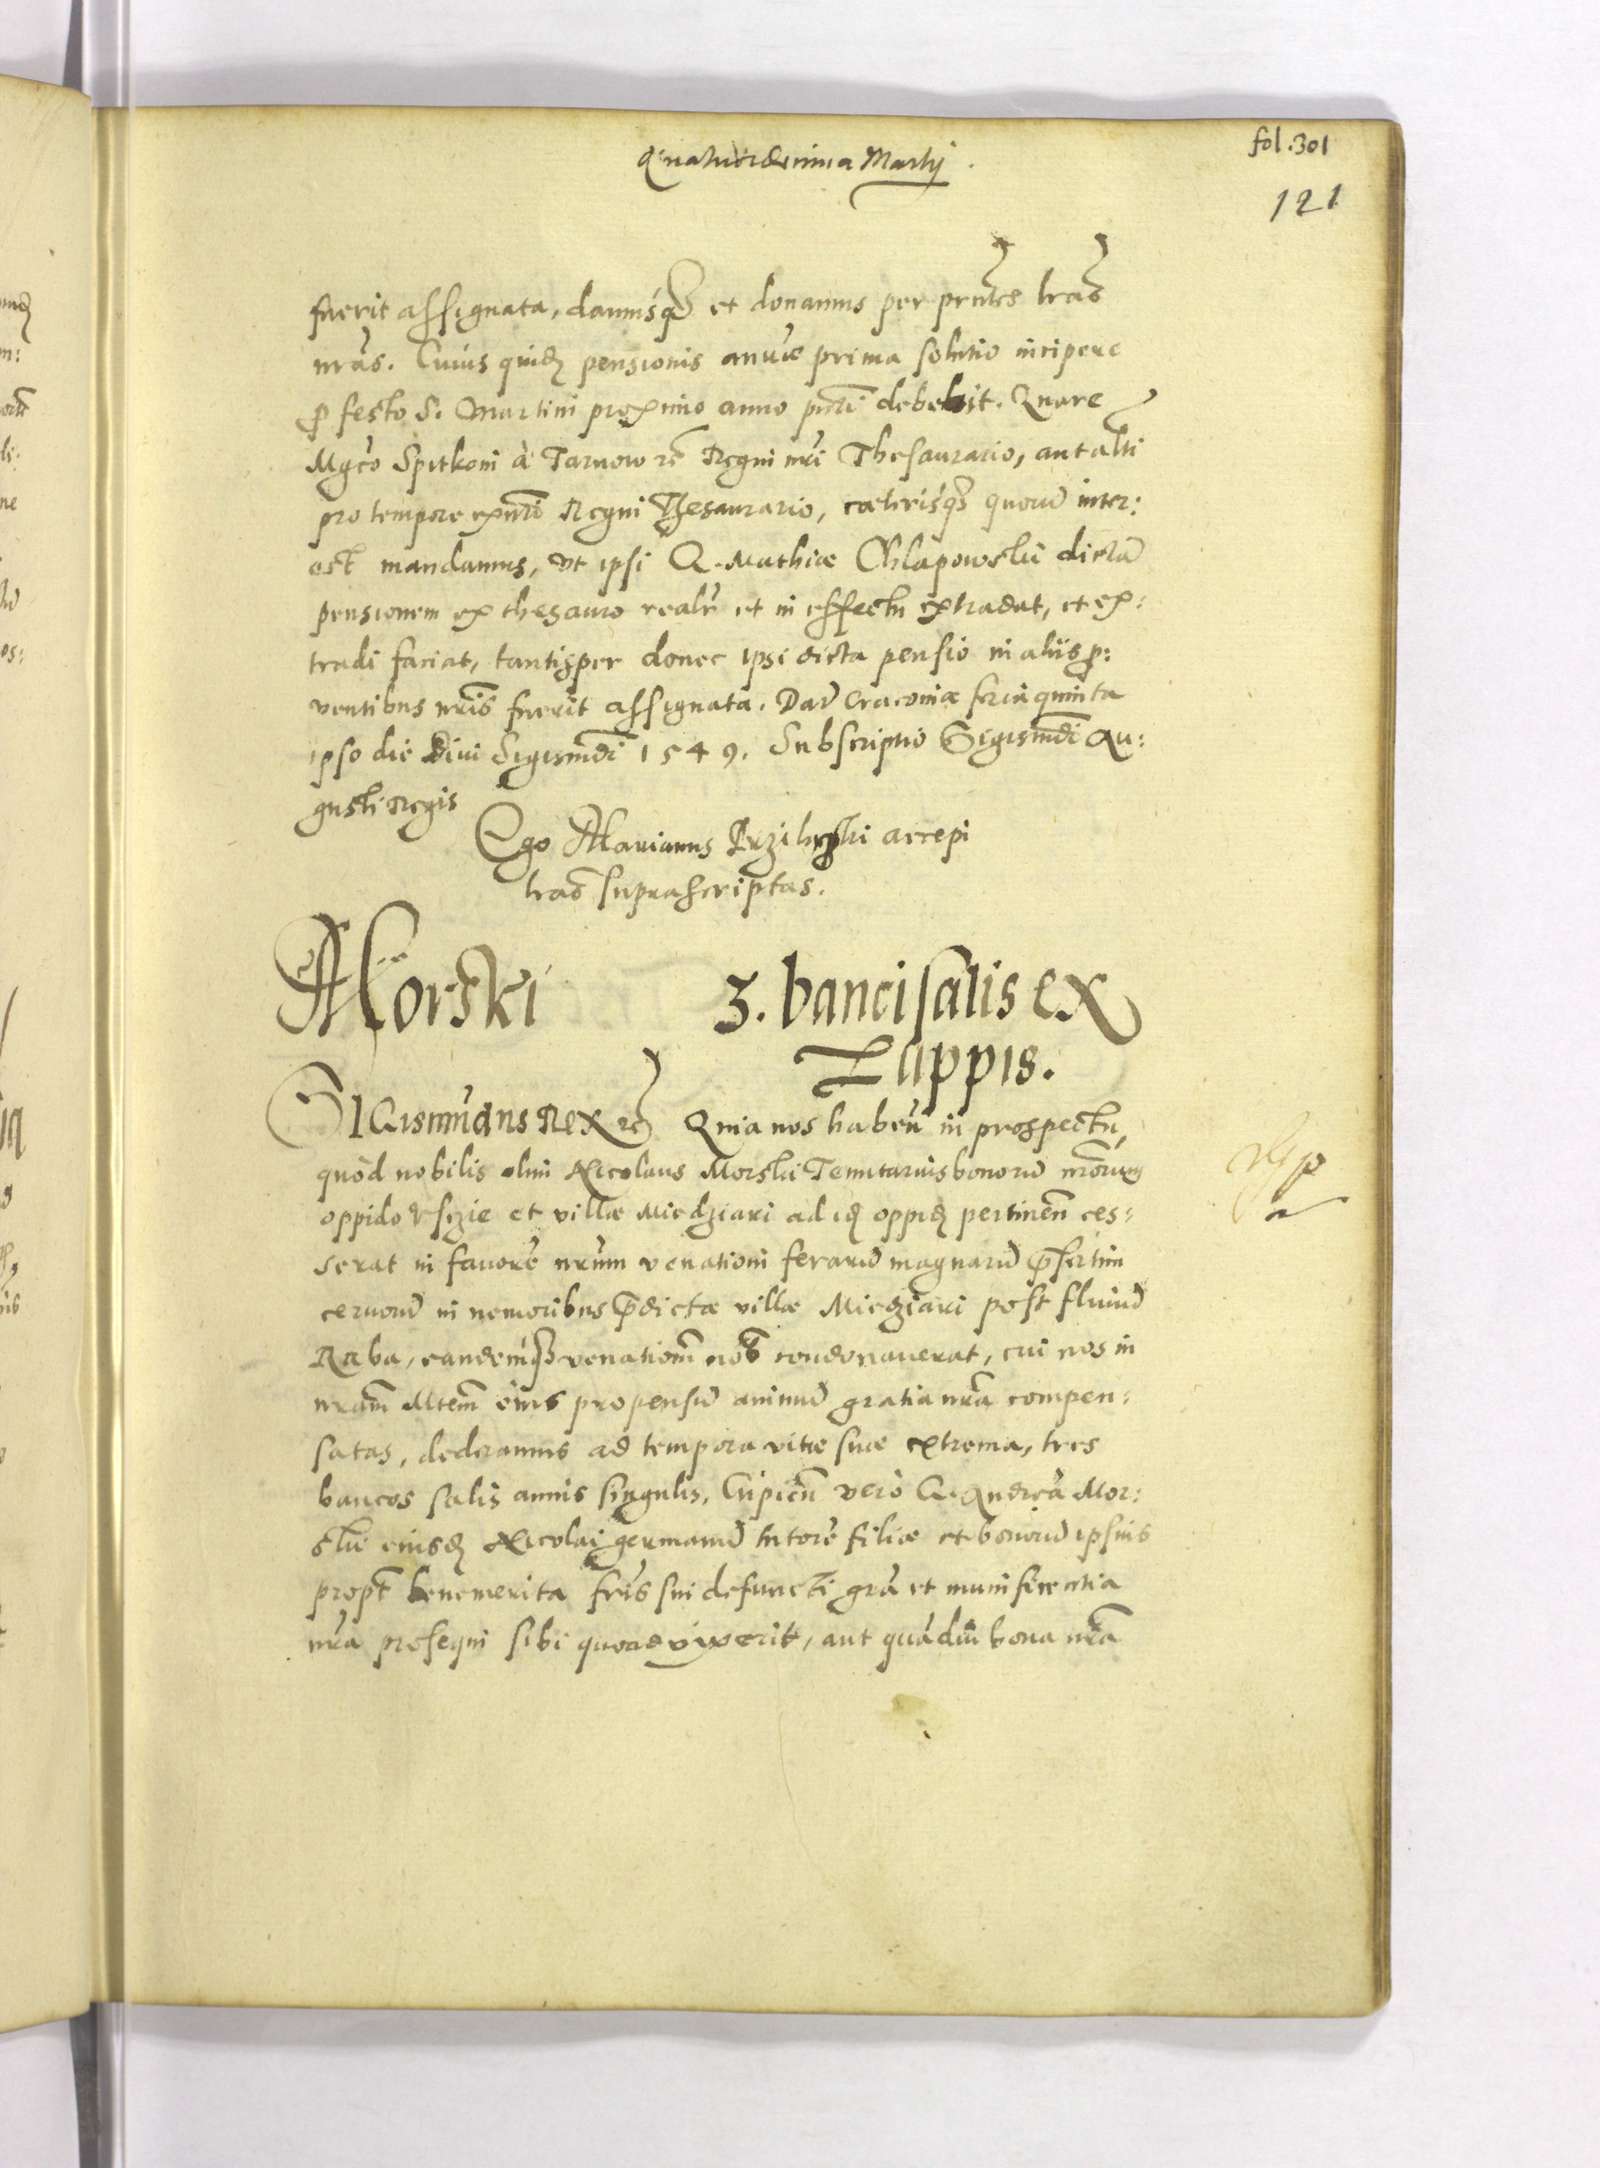 Quatuordecima Martij.
fol. 301
121
fuerit assignata, damusq3 et donamus per prntes lras
nras. Cuius quidẽ pensionis annuae prima solutio incipere
pro festo S. Martini proximo anno pnti debebit. Quare
Mgco Spitkoni à Tarnow rc Regni nri Thesaurario, aut alti
pro tempore exnti Regni Thesaurario, caeterisq3 quorũ inter:
est mandamus, ut ipsi G. Mathiae Chlapowski dictã
pensionem ex thesauro realr et in effectu extradat, et ex:
tradi faciat, tantisper donec ipsi dicta pensio in aliis pro:
ventibus nris fuerit assignata. Dat Cracoviae feria quinta
ipso die Divi Sigismdi 1549. Subscriptio Sigismdi Au:
gusti Regis
Ego Marianus accepi
lras suprascriptas.
Morski 3. banci salis ex
Zuppis.
SIGismũdus Rex rc Quia nos habeñ in prospectu,
quòd nobilis olim Nicolaus Morski Tenutarius bonorũ nrorum
oppido Usczie et villae Miedziari ad id oppidũ pertineñ ces:
serat in favorẽ nrum venationi ferarũ magnarũ prsertim
cervorũ in nemoribus prdictae villae Miedziari post fluviũ
Raba, eandemq3 venationẽ nob condonaverat, cui nos in
nram Mtem eius propensũ animũ gratia nra compen:
satas, dederamus ad tempora vitae suae extrema, tres
bancos salis annis singulis, Cupieñ verò G. Andreã Mor:
ski eiusdẽ Nicolai germanũ tutorẽ filiae et bonorũ ipsius
propt benemerita fris sui defuncti gra et munificentia
nra prosequi sibi quoad vixerit, aut quãdiu bona nra